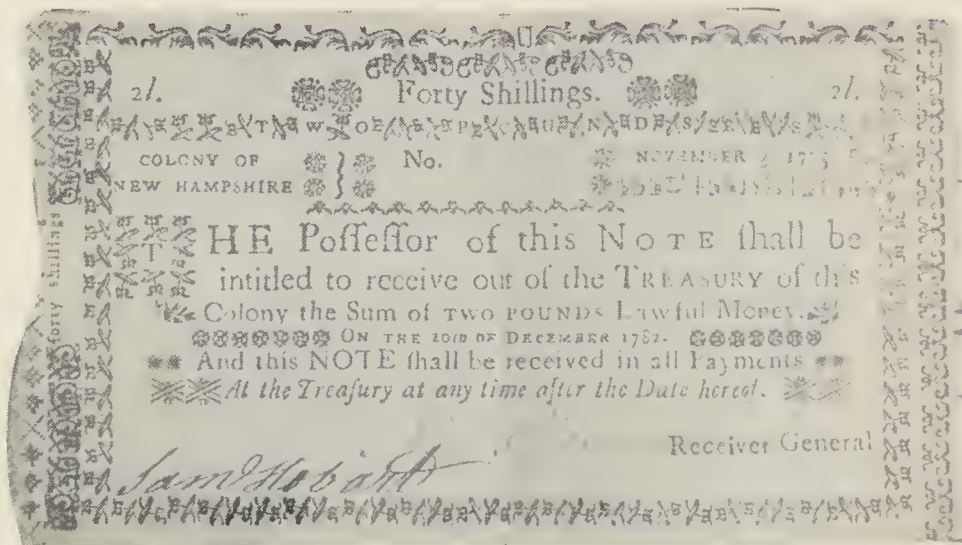 Forty Shillings.
2l. 2l.
TWO POUNDS
COLONY OF
NEW HAMPSHIRE
No.
NOVEMBER 3, 177
THE Poſſeſſor of this NOTE ſhall be
intitled to receive out of the TREASURY of this
Colony the Sum of TWO POUNDS Lawful Money.
ON THE 20TH OF DECEMBER 1782.
And this NOTE ſhall be received in all Payments
At the Treaſury at any time after the Date hereof.
Receiver General
Samˡ Hobart
Forty shillings
forty shillings